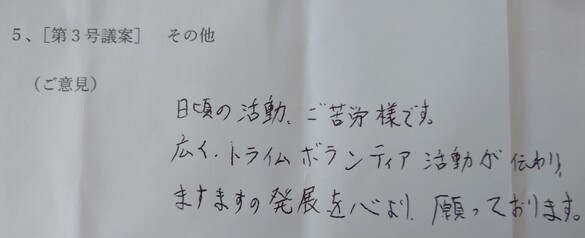 5、［第3号議案］　その他
（ご意見）
日頃の活動、ご苦労様です。
広く、トライムボランティア活動が伝わり、
ますますの発展を心より、願っております。